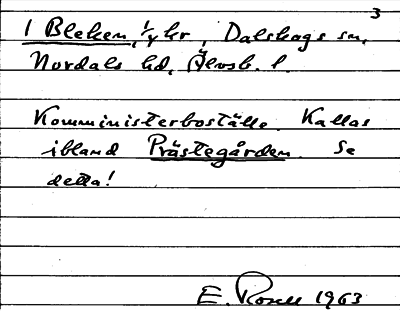 3
1 Bleken, 1/4 hr, Dalskogs sn,
Nordals hd, Älvsb. l.
Komministerboställe. Kallas
ibland Prästegården. Se
detta!
E. Rosell 1963